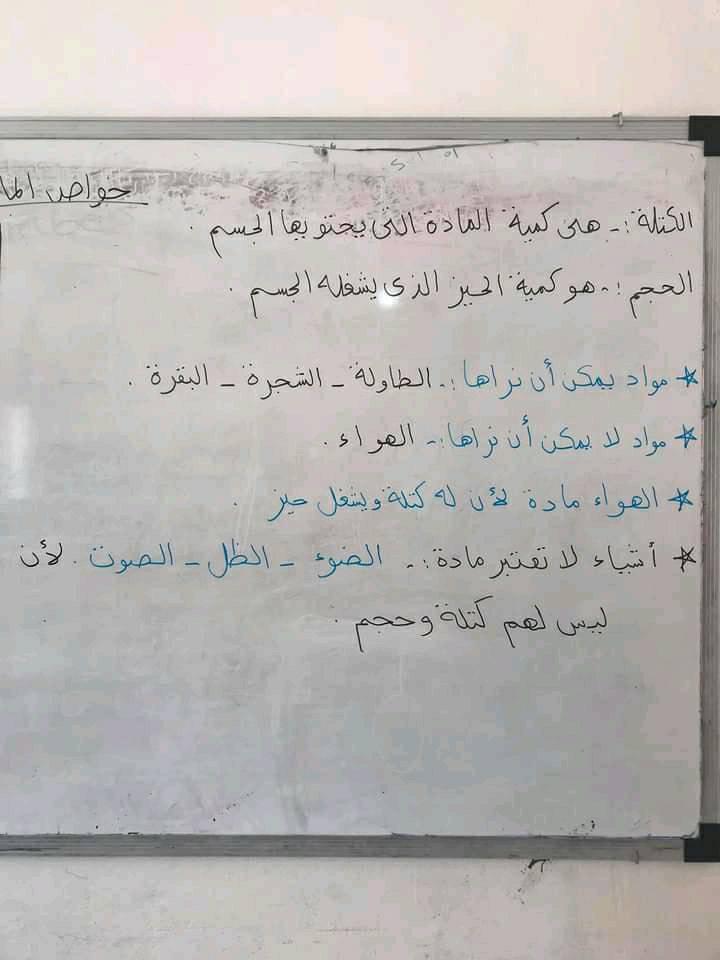 خواص الما
الكتلة :- هى كمية المادة التى يحتويها الجسم .
الحجم :- هو كمية الحيز الذى يشغله الجسم .
* مواد يمكن أن نراها :- الطاولة - الشجرة - البقرة .
* مواد لا يمكن أن نراها :- الهواء .
* الهواء مادة لأن له كتلة ويشغل حيز .
* أشياء لا تعتبر مادة :- الضوء - الظل - الصوت . لأن
ليس لهم كتلة وحجم .